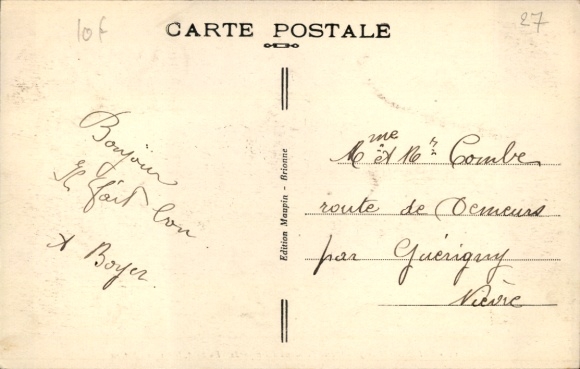 10f
27
CARTE POSTALE
Bonjour
Il fait bon
A Boyer.
Edition Maupin - Brionne
Mme et Mr Combe
route de Demeurs
par Guérigny
Nièvre